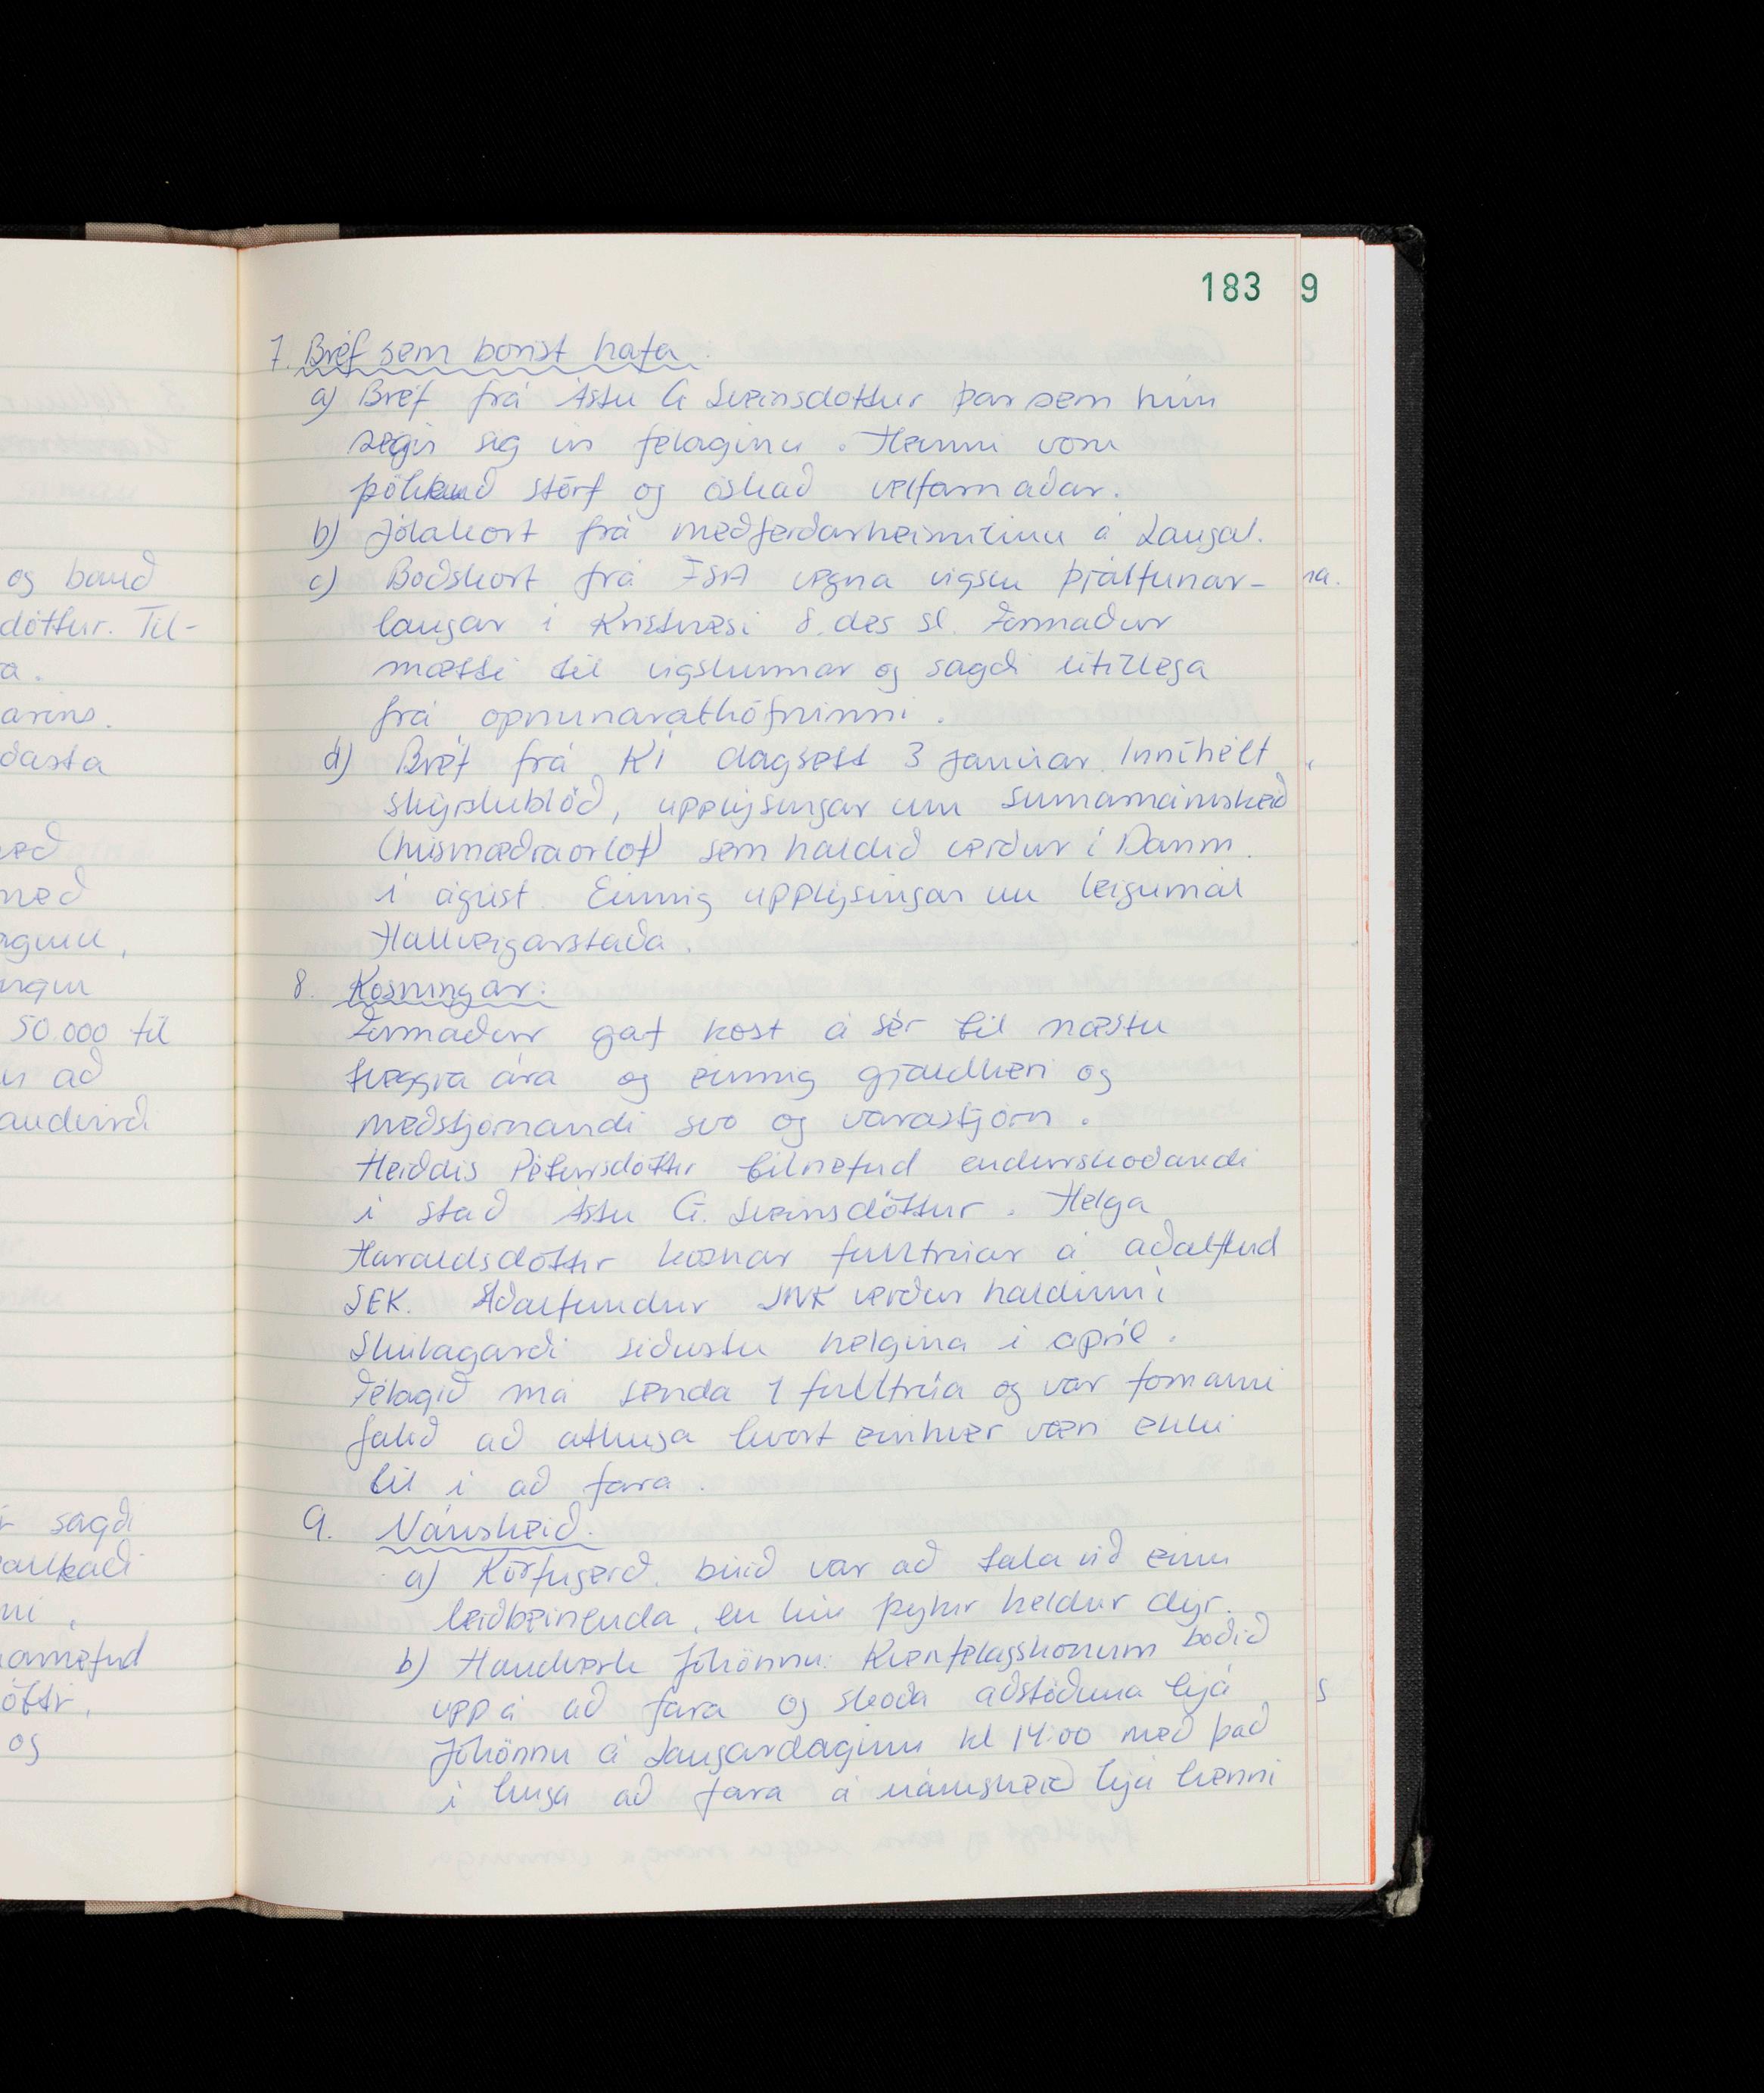 183
9
7. Bréf sem borist hafa.
a) Bréf frá Ástu G Sveinsdóttur þar sem hún
segir sig úr félaginu. Henni voru
þökkuð störf og óskað velfarnaðar.
b) Jólakort frá meðferðarheimilinu á Laugal.
c) Boðskort frá FSA vegna vígslu þjálfunar-
laugar í Kristnesi 8. des sl. Formaður
mætti til vígslunnar og sagði lítillega
frá opnunarathöfninni.
d) Bréf frá KÍ dagsett 3 janúar. Innihélt
skýrslublöð, upplýsingar um sumarnámskeið
(húsmæðraorlof) sem haldið verður í Danm.
í ágúst. Einnig upplýsingar um leigumál
Hallveigarstaða.
8. Kosningar:
Formaður gaf kost á sér til næstu
tveggja ára og einnig gjaldkeri og
meðstjórnandi svo og varastjórn.
Heiðdís Pétursdóttir tilnefnd endurskoðandi
í stað Ástu G. Sveinsdóttur. Helga
Haraldsdóttir kosnar fulltrúar á aðalfund
SEK. Aðalfundur SNK verður haldinn í
Skúlagarði síðustu helgina í apríl.
Félagið má senda 1 fulltrúa og var formanni
falið að athuga hvort einhver væri ekki
til í að fara.
9. Námskeið.
a) Körfugerð. búið var að tala við einn
leiðbeinenda, en hún þykir heldur dýr.
b) Handverk Jóhönnu: Kvenfélagskonum boðið
upp á að fara og skoða aðstöðuna hjá
Jóhönnu á Laugardaginn kl 14:00 með það
í huga að fara á námskeið hjá henni
og bauð
dóttur. Til-
a.
arins.
ðasta
með
aginu,
50.000 til
u að
r sagði
ni,
óttir,
og
na.
s